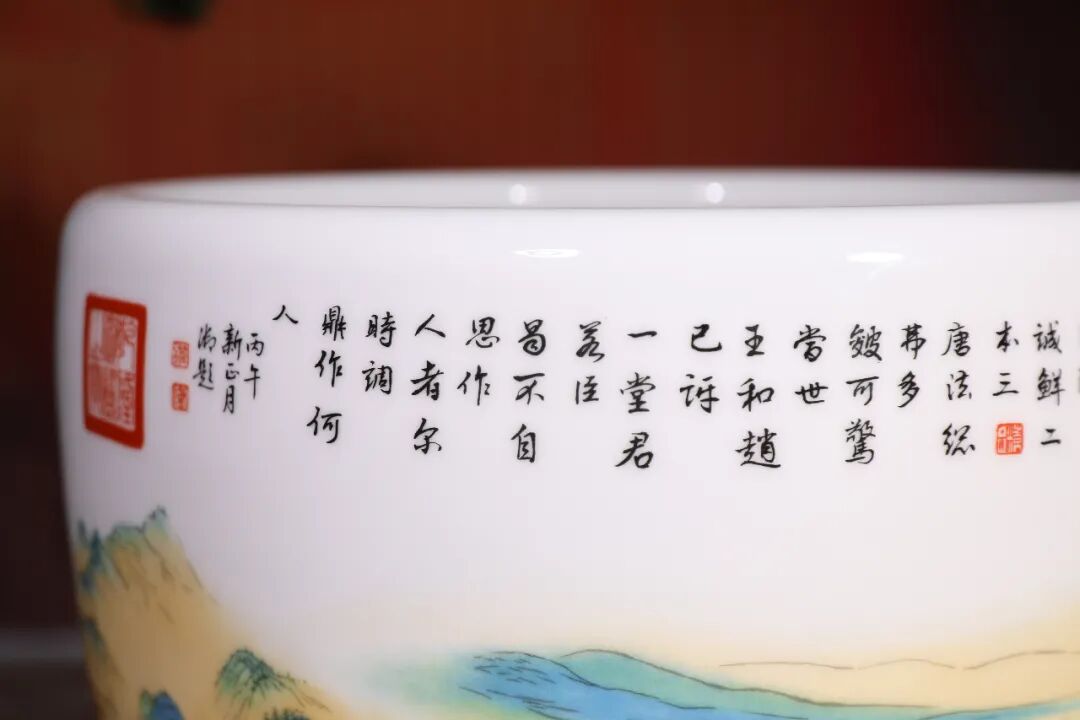 誠鮮二
本三
唐法總
茀多
皴可驚
當世
王和趙
已訝
一堂君
若臣
曷不自
思作
人者尔
時調
鼎作何
人
丙午
新正月
御題